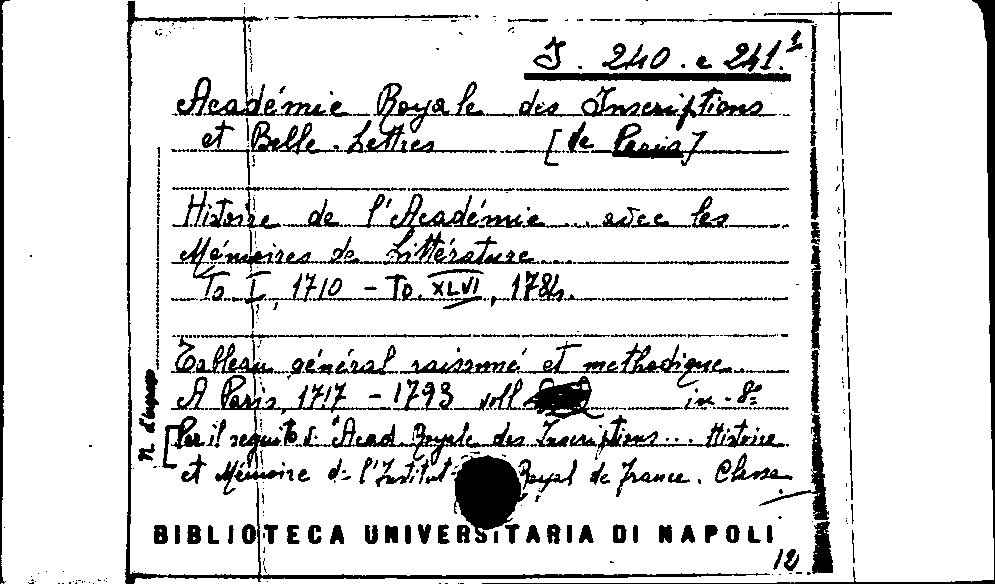 J. 240. e 241.¹
Académie Royale des Inscriptions
et Belle-Lettres [de Paris]
Histoire de l'Académie... avec les
Mémoires de Littérature...
To. I, 1710 - To. XLVI, 1784.
Tableau général raisonné et methodique.
A Paris, 1717 - 1793 voll in-8º
[Per il seguito v. Acad. Royale des Inscriptions... Histoire
et Mémoire de l'Institut Royal de France. Classe
n. d'ingresso
BIBLIOTECA UNIVERSITARIA DI NAPOLI
12